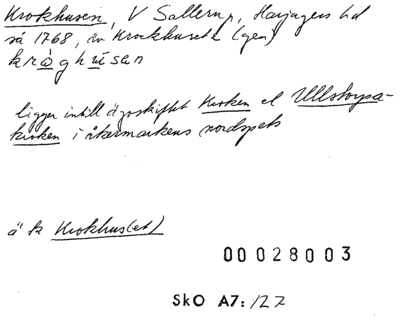 Krokhusen, V Sallerup, Harjagers hd
så 1768, äv Krockhusete (gen)
kràghúsen
ligger intill ägoskiftet Kroken el Ullstorpa-
kroken i åkermarkens nordspets
ä k Krokhus(et)
00028003
SkO A7:127